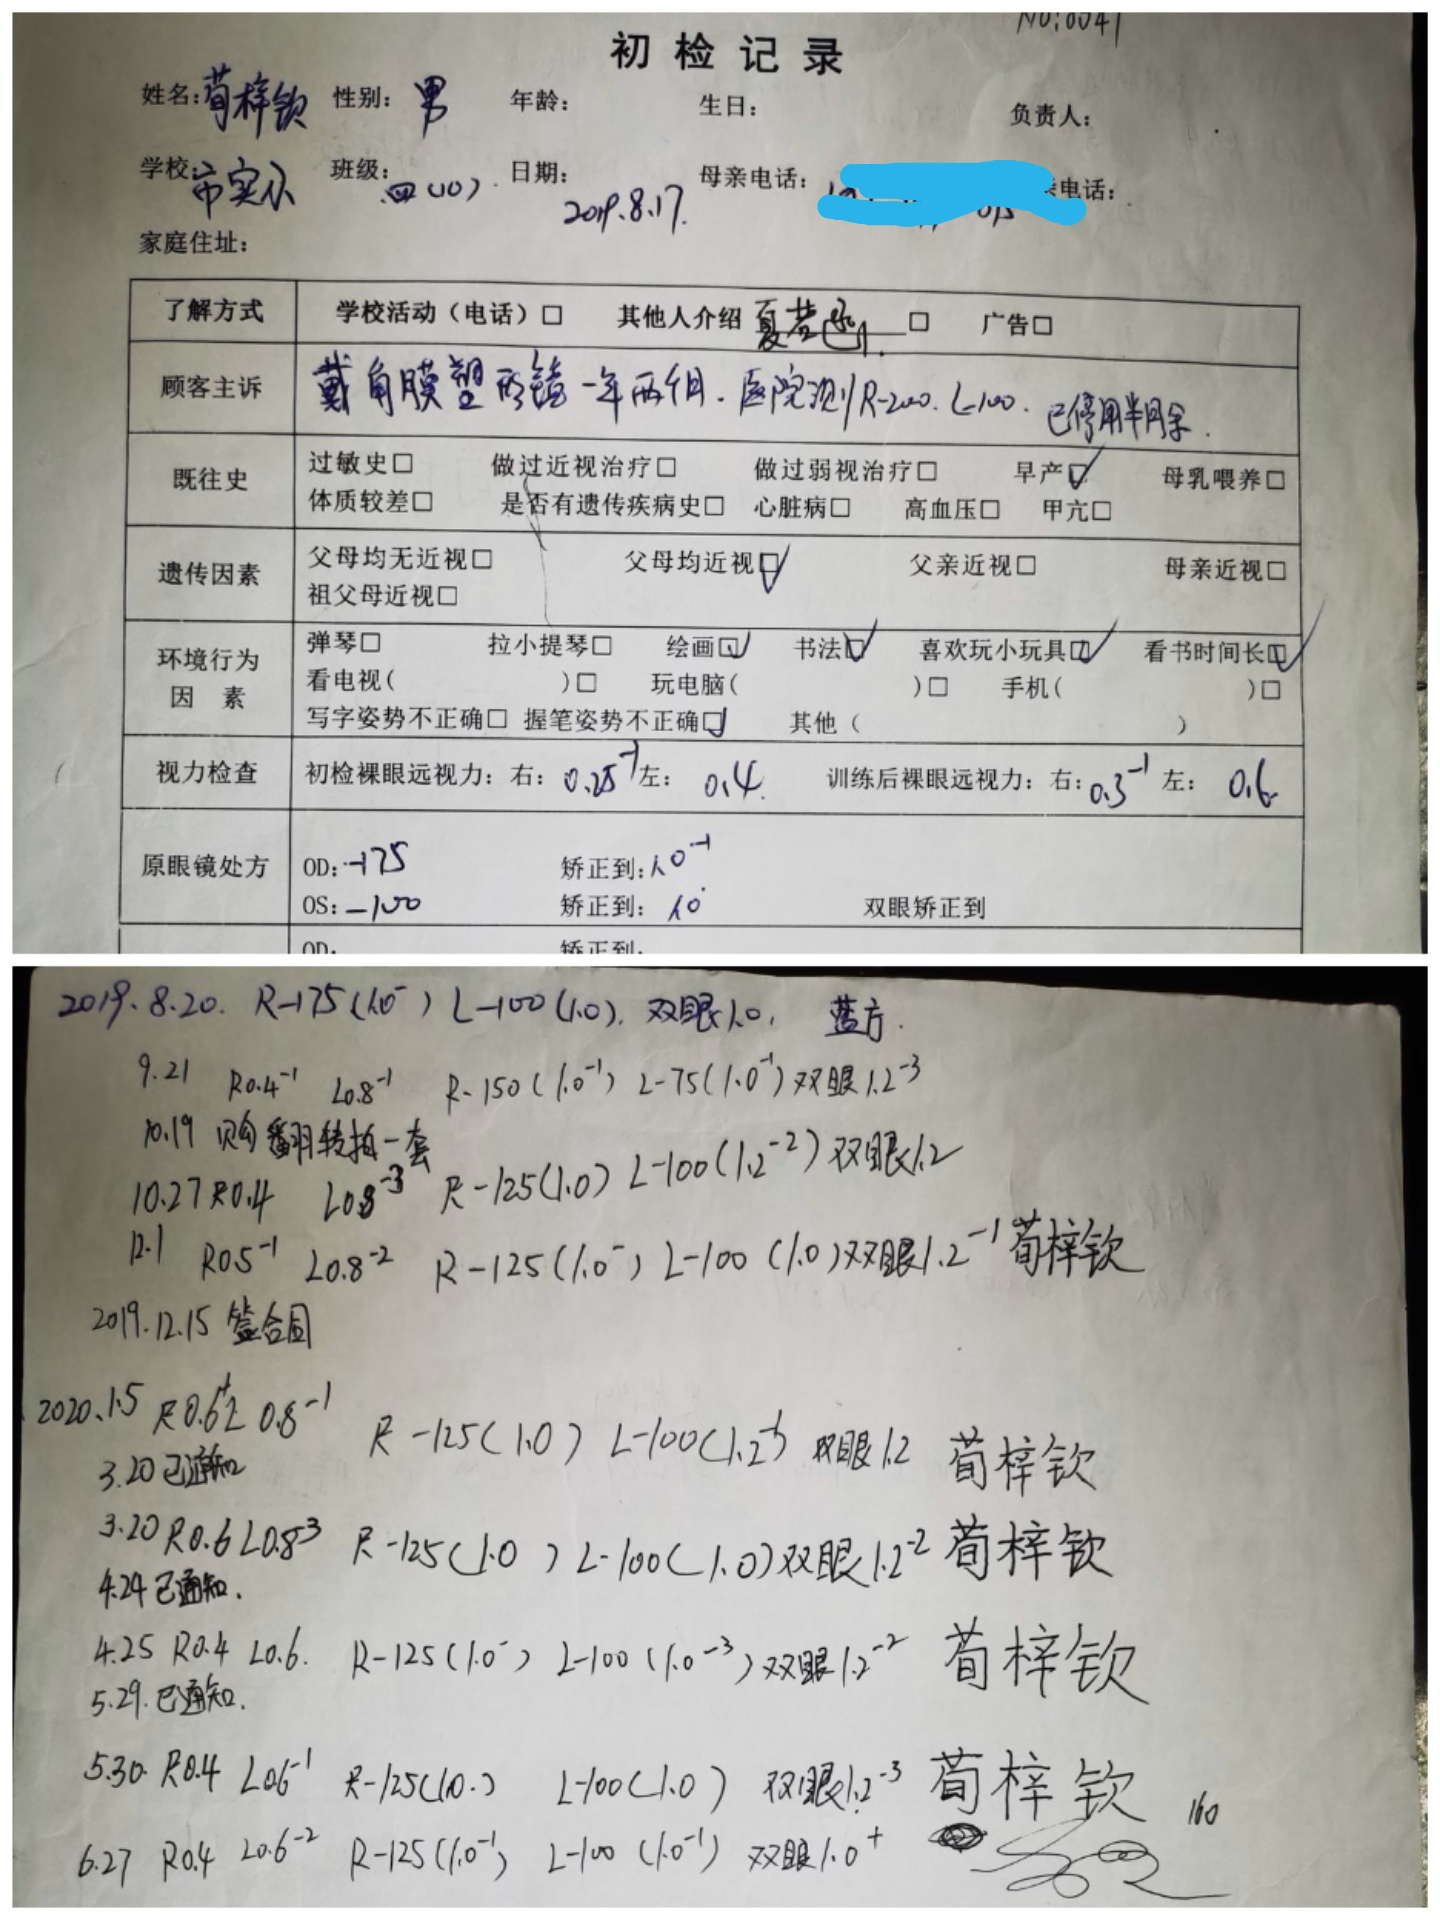 NO:0041
初检记录
姓名:荀梓钦 性别:男 年龄: 生日: 负责人:
学校:市实小 班级:四(10) 日期:2019.8.17. 母亲电话: 电话:
家庭住址:
了解方式 学校活动(电话)□ 其他人介绍 夏若 □ 广告□
顾客主诉 戴角膜塑形镜一年两个月.医院测R-200.L-100.已停用半月余.
既往史 过敏史□ 做过近视治疗□ 做过弱视治疗□ 早产☑ 母乳喂养□
体质较差□ 是否有遗传疾病史□ 心脏病□ 高血压□ 甲亢□
遗传因素 父母均无近视□ 父母均近视☑ 父亲近视□ 母亲近视□
祖父母近视□
环境行为因素 弹琴□ 拉小提琴□ 绘画☑ 书法☑ 喜欢玩小玩具☑ 看书时间长☑
看电视( )□ 玩电脑( )□ 手机( )□
写字姿势不正确□ 握笔姿势不正确☑ 其他( )
视力检查 初检裸眼远视力:右:0.25⁻¹ 左:0.4. 训练后裸眼远视力:右:0.3⁻¹ 左:0.6
原眼镜处方 OD:-175 矫正到:1.0⁻¹
OS:-100 矫正到:1.0 双眼矫正到
OD: 矫正到:
2019.8.20. R-175(1.0⁻) L-100(1.0). 双眼1.0, 蓝方.
9.21 R0.4⁻¹ L0.8⁻¹ R-150(1.0⁻¹) L-75(1.0⁻¹)双眼1.2⁻³
10.19 购翻转拍一套
10.27 R0.4 L0.8⁻³ R-125(1.0) L-100(1.2⁻²)双眼1.2
12.1 R0.5⁻¹ L0.8⁻² R-125(1.0⁻) L-100(1.0)双眼1.2⁻¹ 荀梓钦
2019.12.15 签合同
2020.1.5 R0.6⁺ L0.8⁻¹ R-125(1.0) L-100(1.2⁻¹) 双眼1.2 荀梓钦
3.20已通知
3.20 R0.6 L0.8³ R-125(1.0) L-100(1.0)双眼1.2⁻² 荀梓钦
4.24已通知.
4.25 R0.4 L0.6. R-125(1.0⁻) L-100(1.0⁻³)双眼1.2⁻² 荀梓钦
5.29.已通知.
5.30. R0.4 L0.6⁻¹ R-125(1.0.) L-100(1.0) 双眼1.2⁻³ 荀梓钦 160
6.27 R0.4 L0.6⁻² R-125(1.0⁻¹) L-100(1.0⁻¹) 双眼1.0⁺